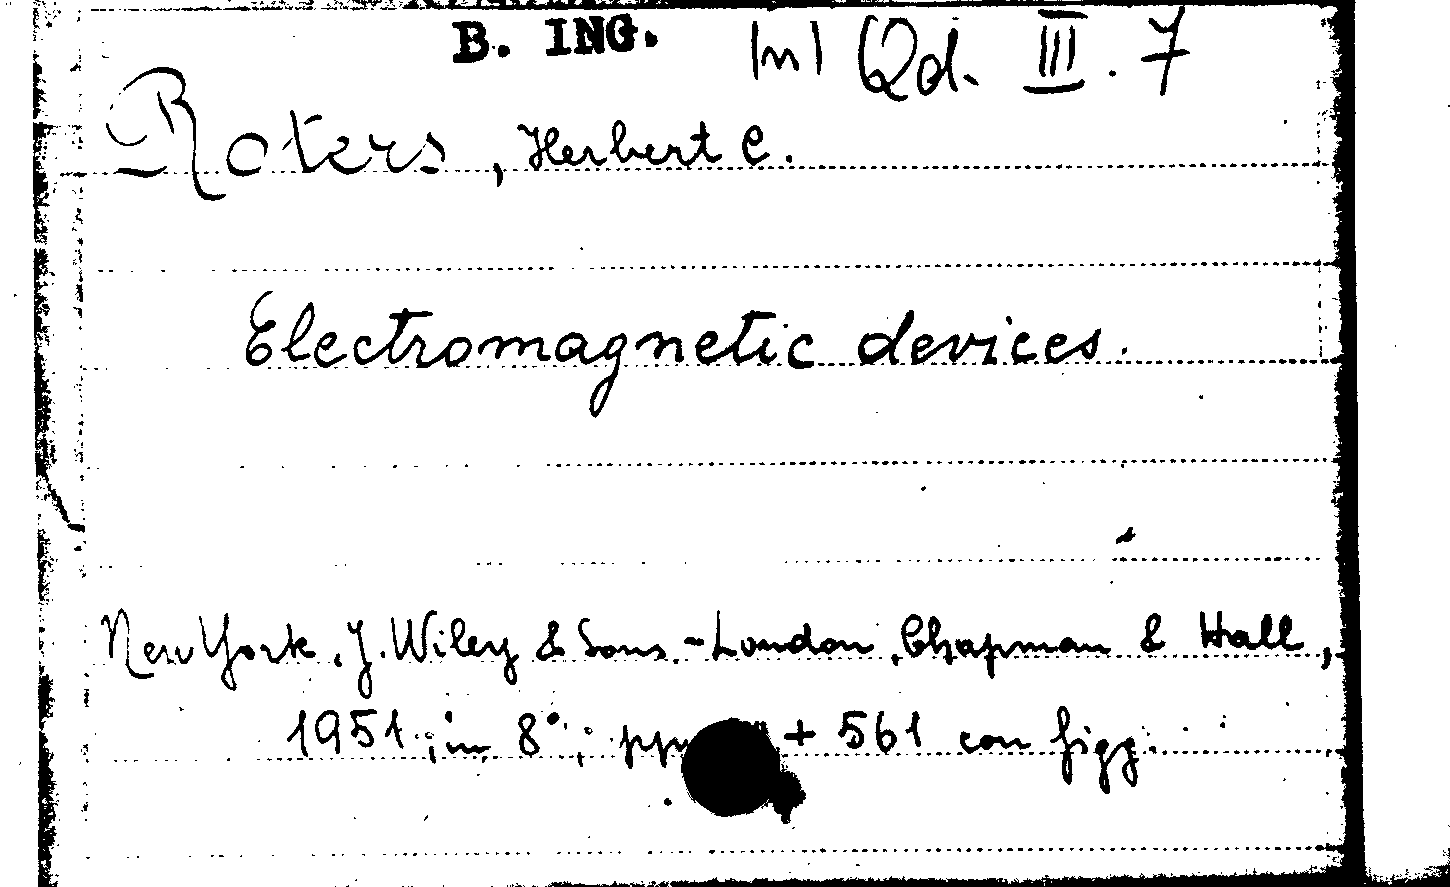 B. ING. |m| Qd. III. 7
Roters, Herbert C.
Electromagnetic devices.
New York, J. Wiley & Sons - London, Chapman & Hall,
1951; in 8°; pp. + 561 con figg.